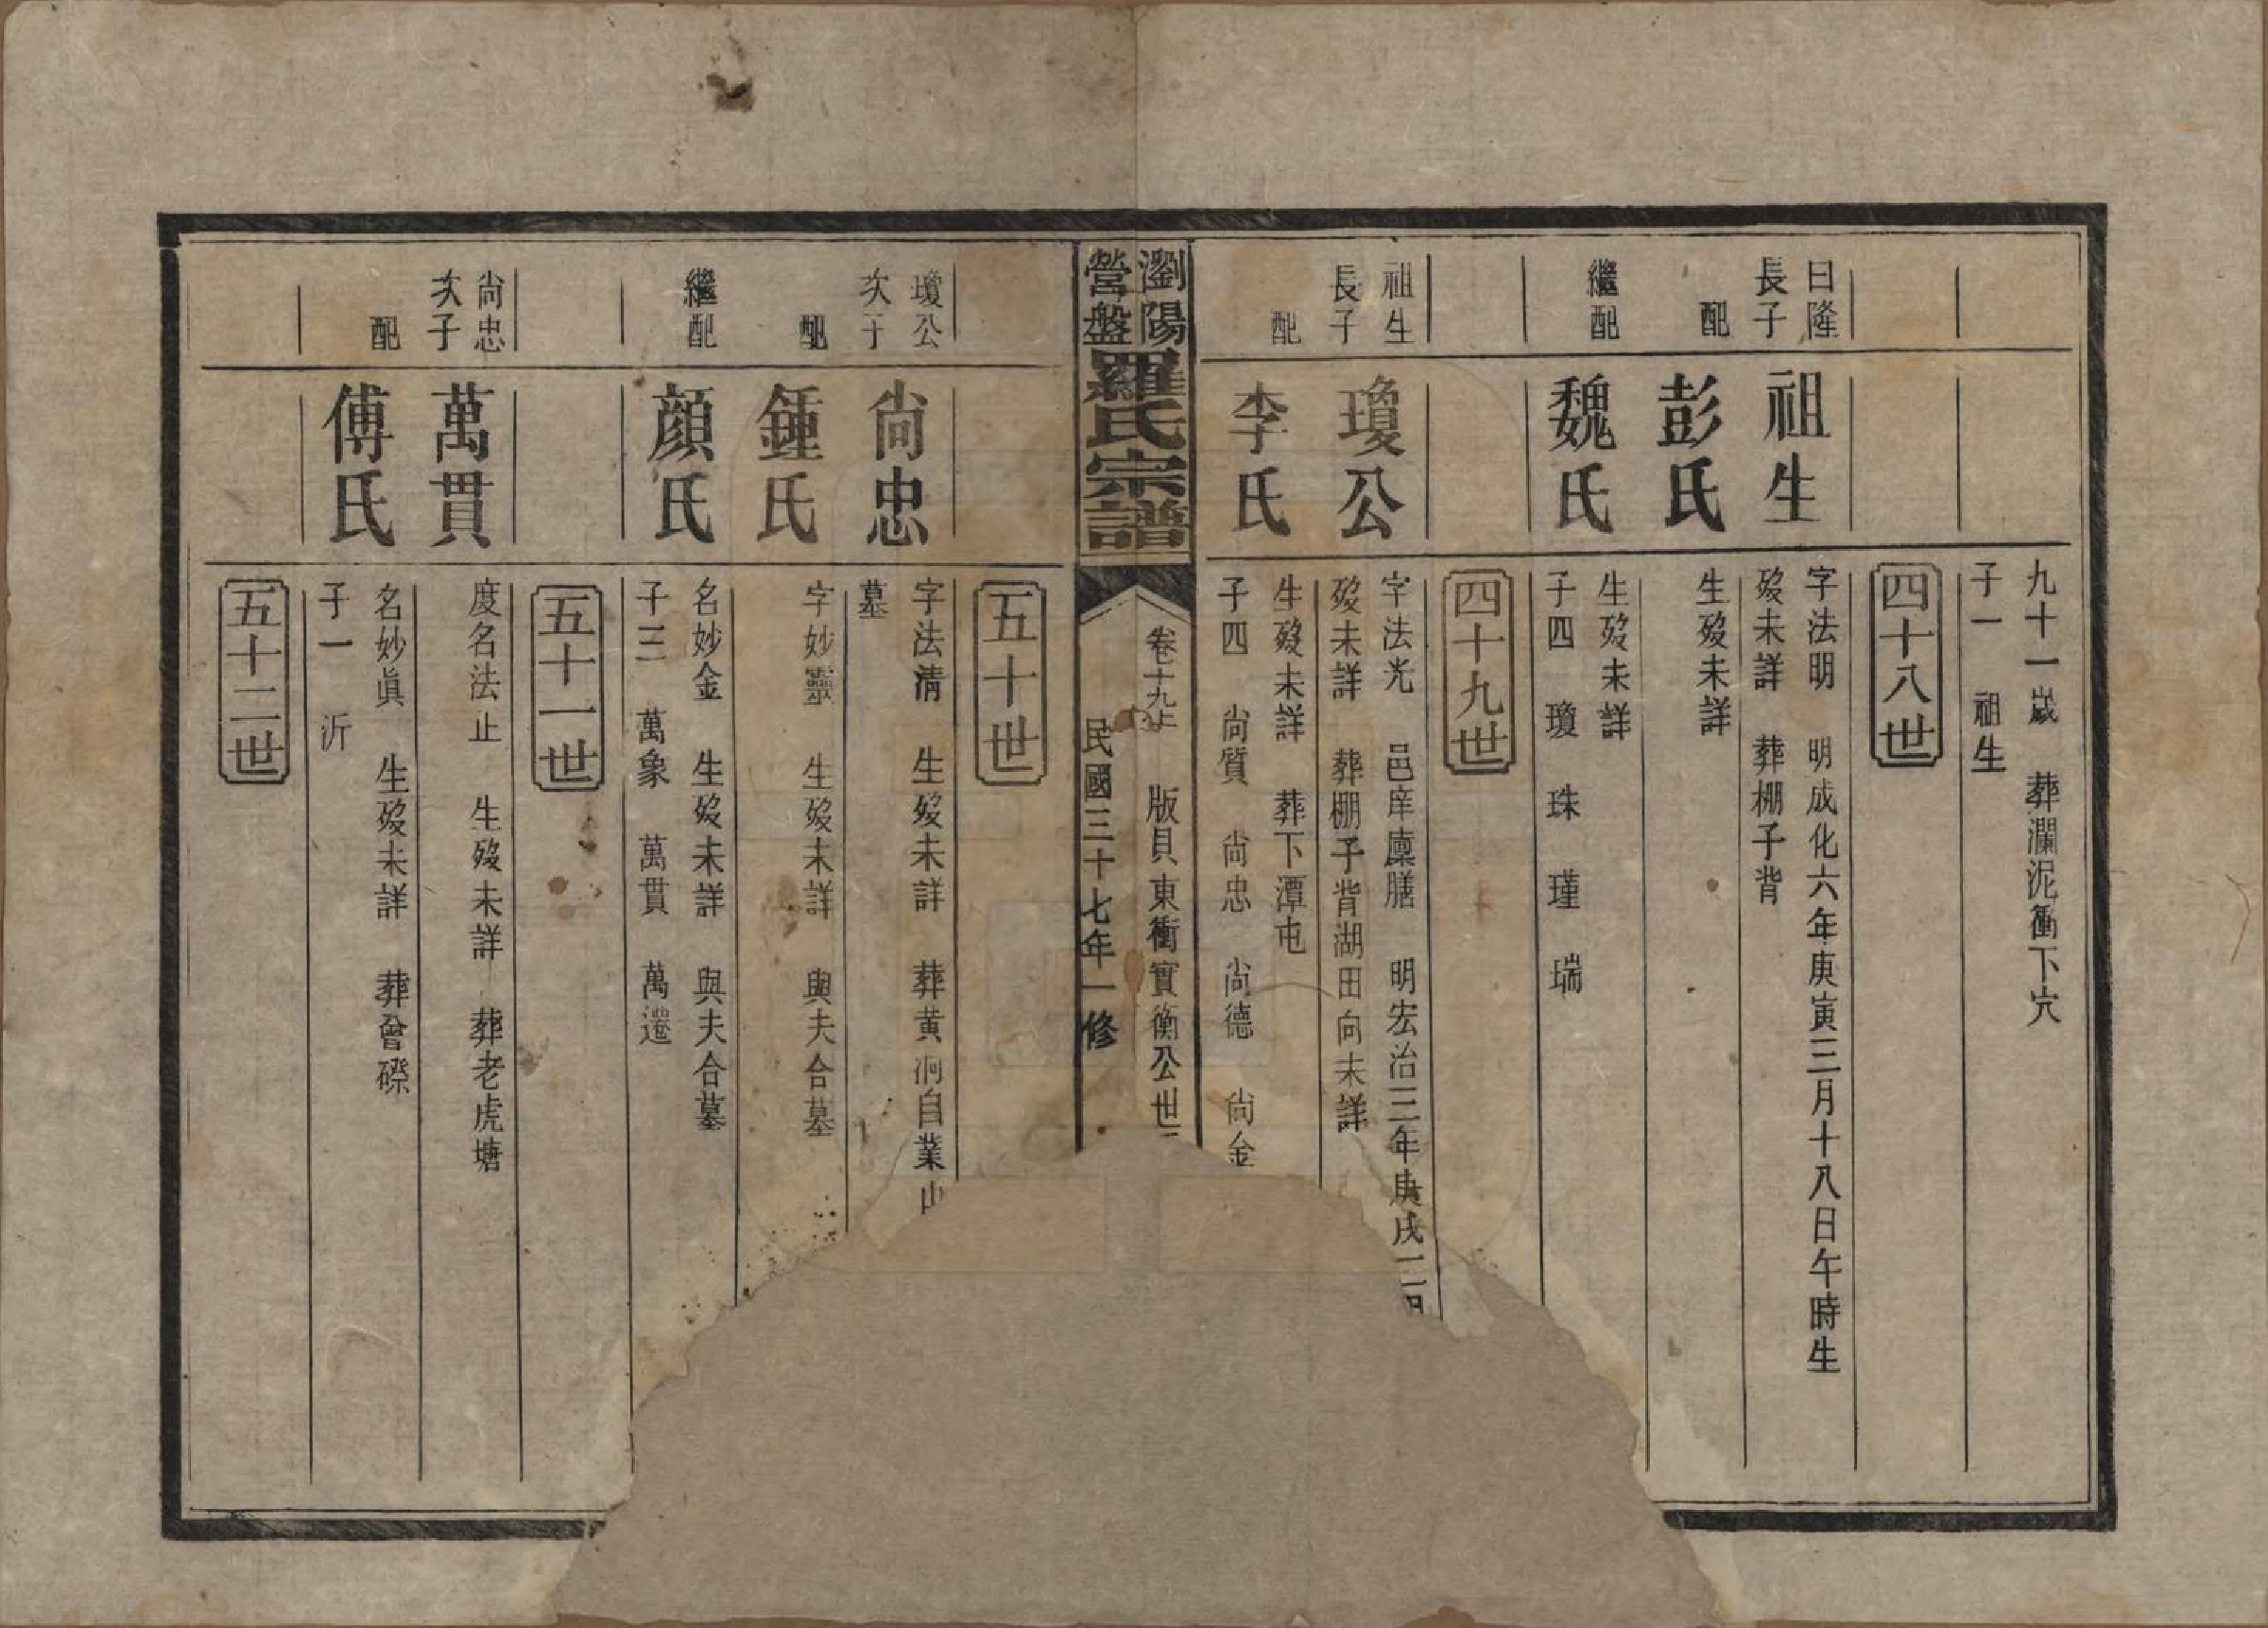 九十一歲　葬瀾泥衝下穴
子一　祖生
四十八世
曰隆
長子
祖生
字法明　明成化六年庚寅三月十八日午時生
歿未詳　葬棚子背
配
彭氏
生歿未詳
繼配
魏氏
生歿未詳
子四　瓊　珠　瑾　瑞
四十九世
祖生
長子
瓊公
字法光　邑庠廩膳　明宏治三年庚戌二
歿未詳　葬棚子背湖田向未詳
配
李氏
生歿未詳　葬下潭屯
子四　尚質　尚忠　尚德　尚金
瀏陽
營盤
羅氏宗譜
卷十九上　版貝東衝實衡公世
民國三十七年一修
五十世
瓊公
次子
尚忠
字法清　生歿未詳　葬黃泂自業山
墓
配
鍾氏
字妙靈　生歿未詳　與夫合墓
繼配
顔氏
名妙金　生歿未詳　與夫合墓
子三　萬象　萬貫　萬選
五十一世
尚忠
次子
萬貫
度名法止　生歿未詳　葬老虎塘
配
傅氏
名妙眞　生歿未詳　葬曾磜
子一　沂
五十二世